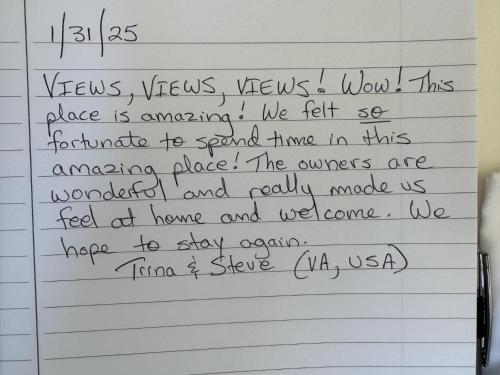 1/31/25
VIEWS, VIEWS, VIEWS! Wow! This
place is amazing! We felt so
fortunate to spend time in this
amazing place! The owners are
wonderful and really made us
feel at home and welcome. We
hope to stay again.
Trina & Steve (VA, USA)